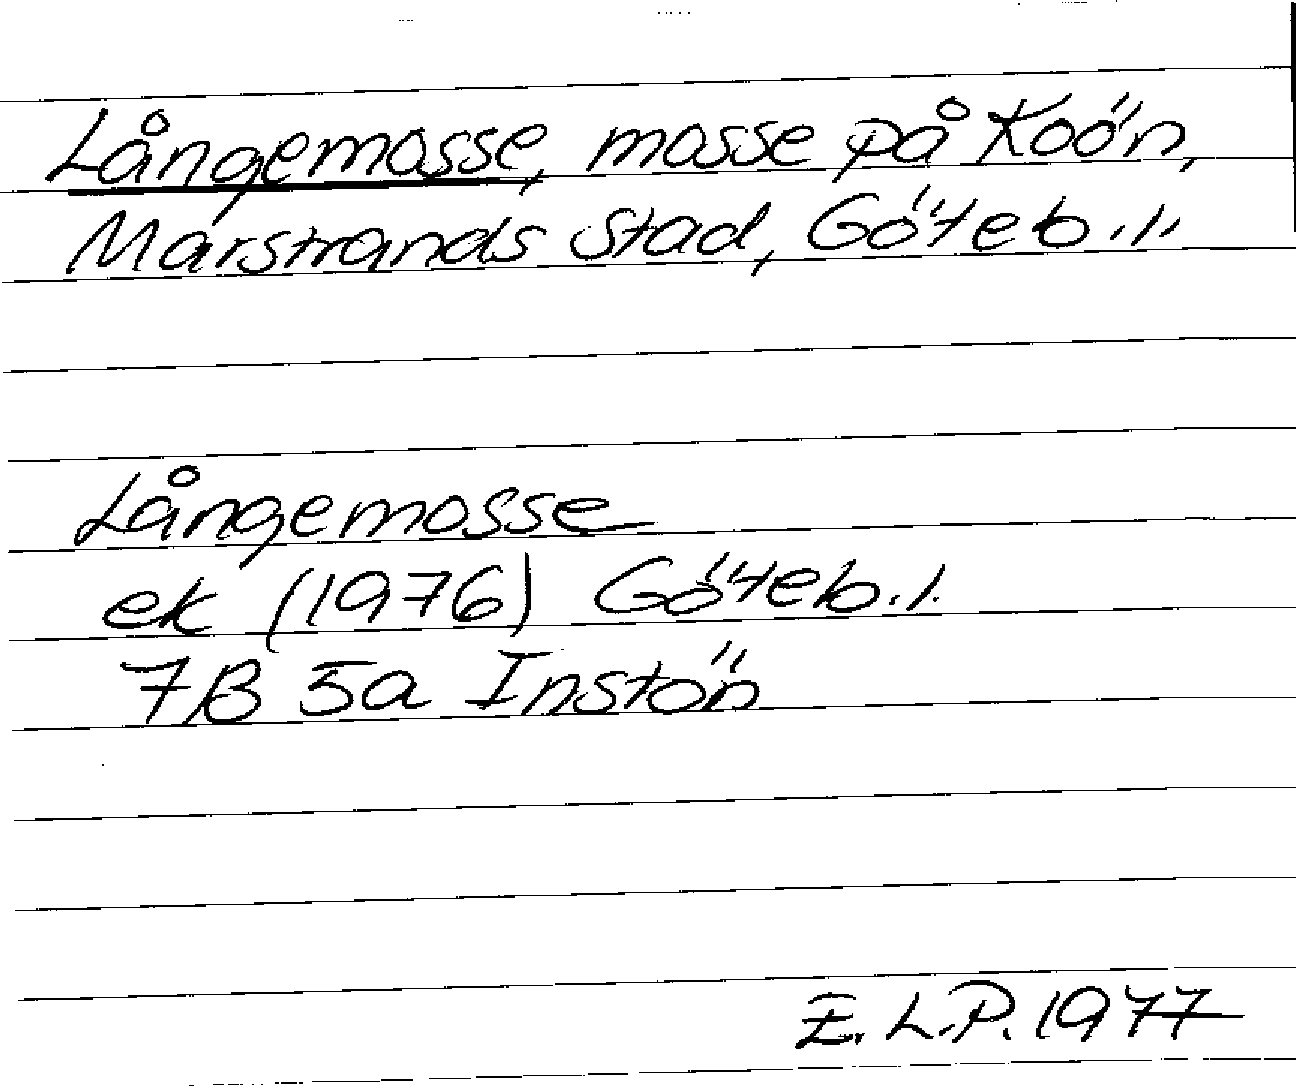 Långemosse, mosse på Koön,
Marstrands stad, Göteb. l.
Långemosse
ek (1976) Göteb. l.
7B 5a Instön
E. L-P. 1977